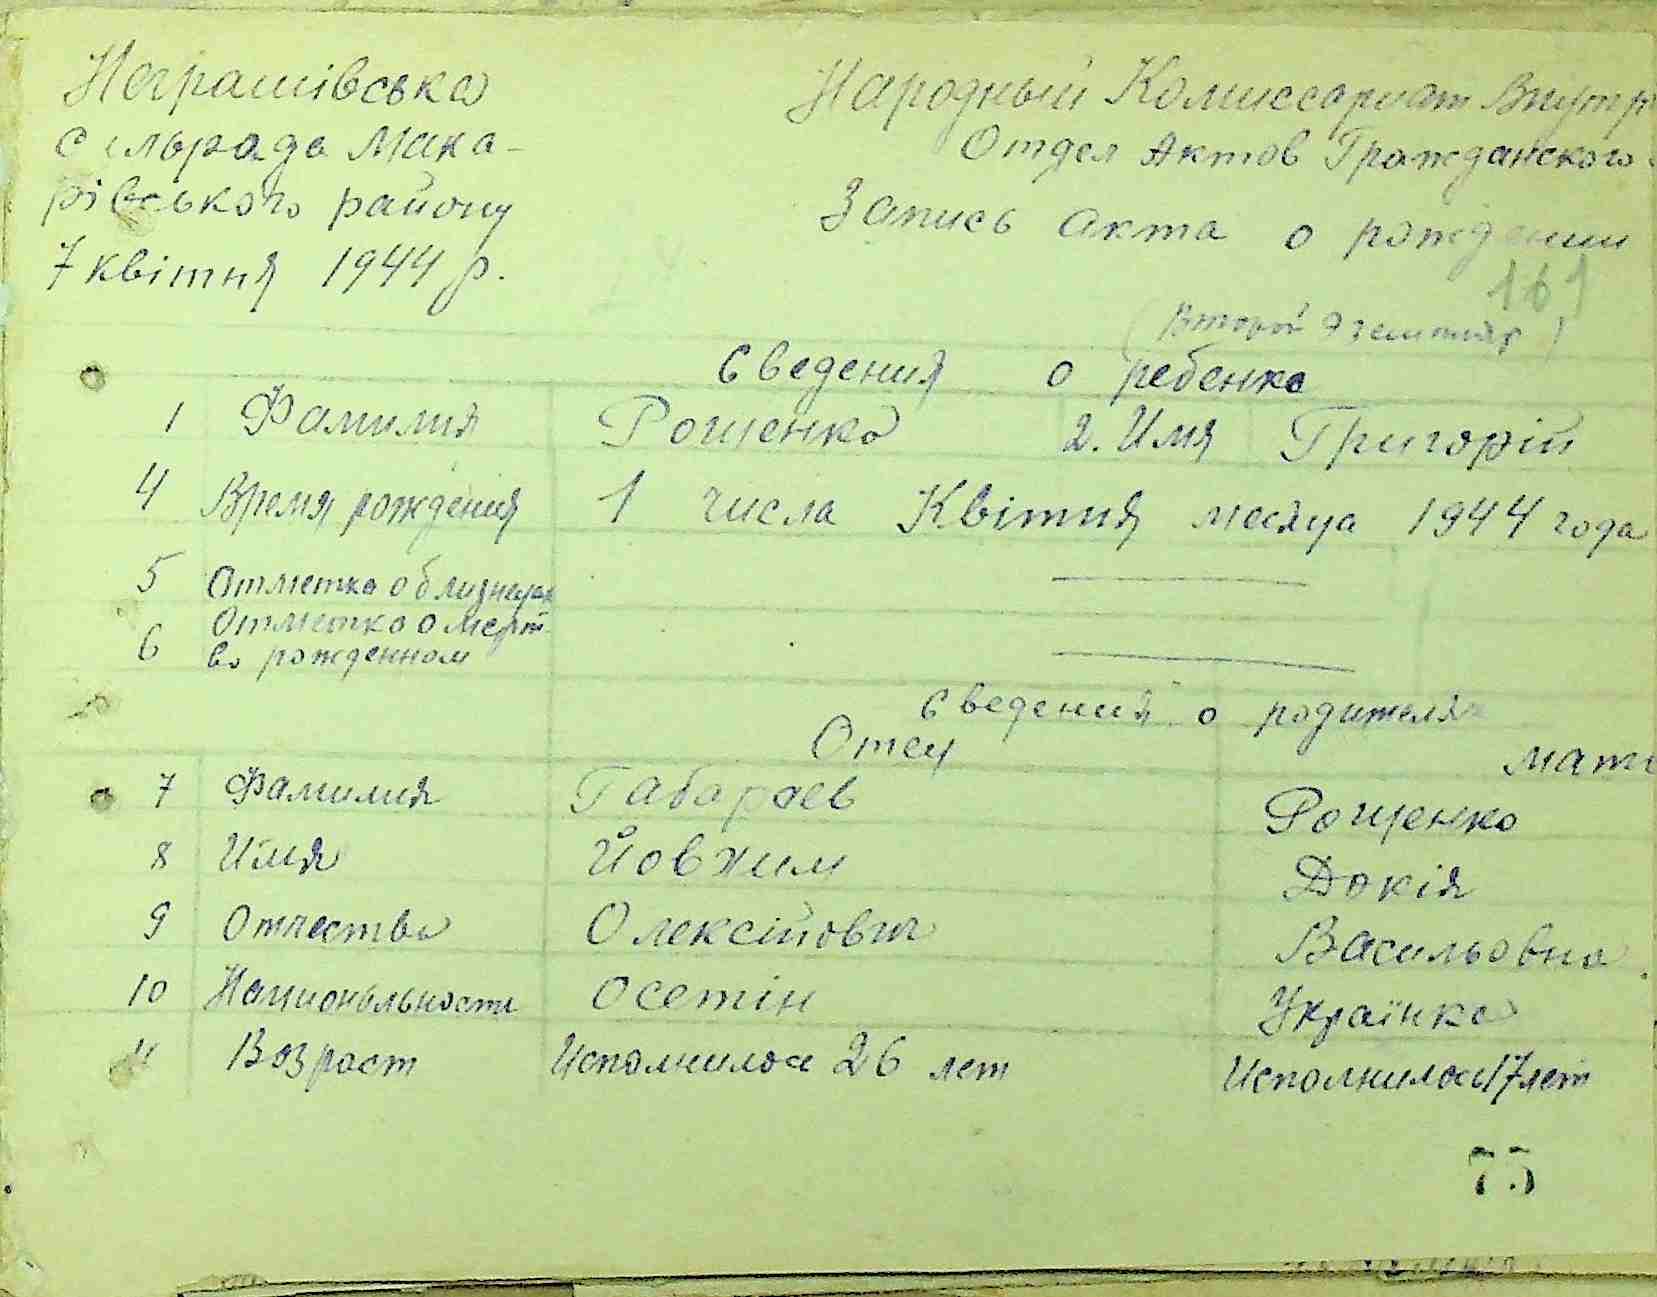 Неграшівська
сільрада Мака-
рівського району
7 квітня 1944 р.
Народный Комиссариат Внутр
Отдел Актов Гражданского
Запись акта о рождении
161
(Второй экземпляр)
Сведения о ребенке
1 Фамилия Рощенко 2. Имя Григорій
4 Время рождения 1 числа Квітня месяца 1944 года
5 Отметка о близнецах
6 Отметка о мерт-
во рожденном
Сведения о родителях
Отец мать
7 Фамилия Габараев Рощенко
8 Имя Йовхим Докія
9 Отчество Олексійович Васильовна
10 Национальность Осетін Українка
11 Возраст Исполнилось 26 лет Исполнилось 17 лет
75